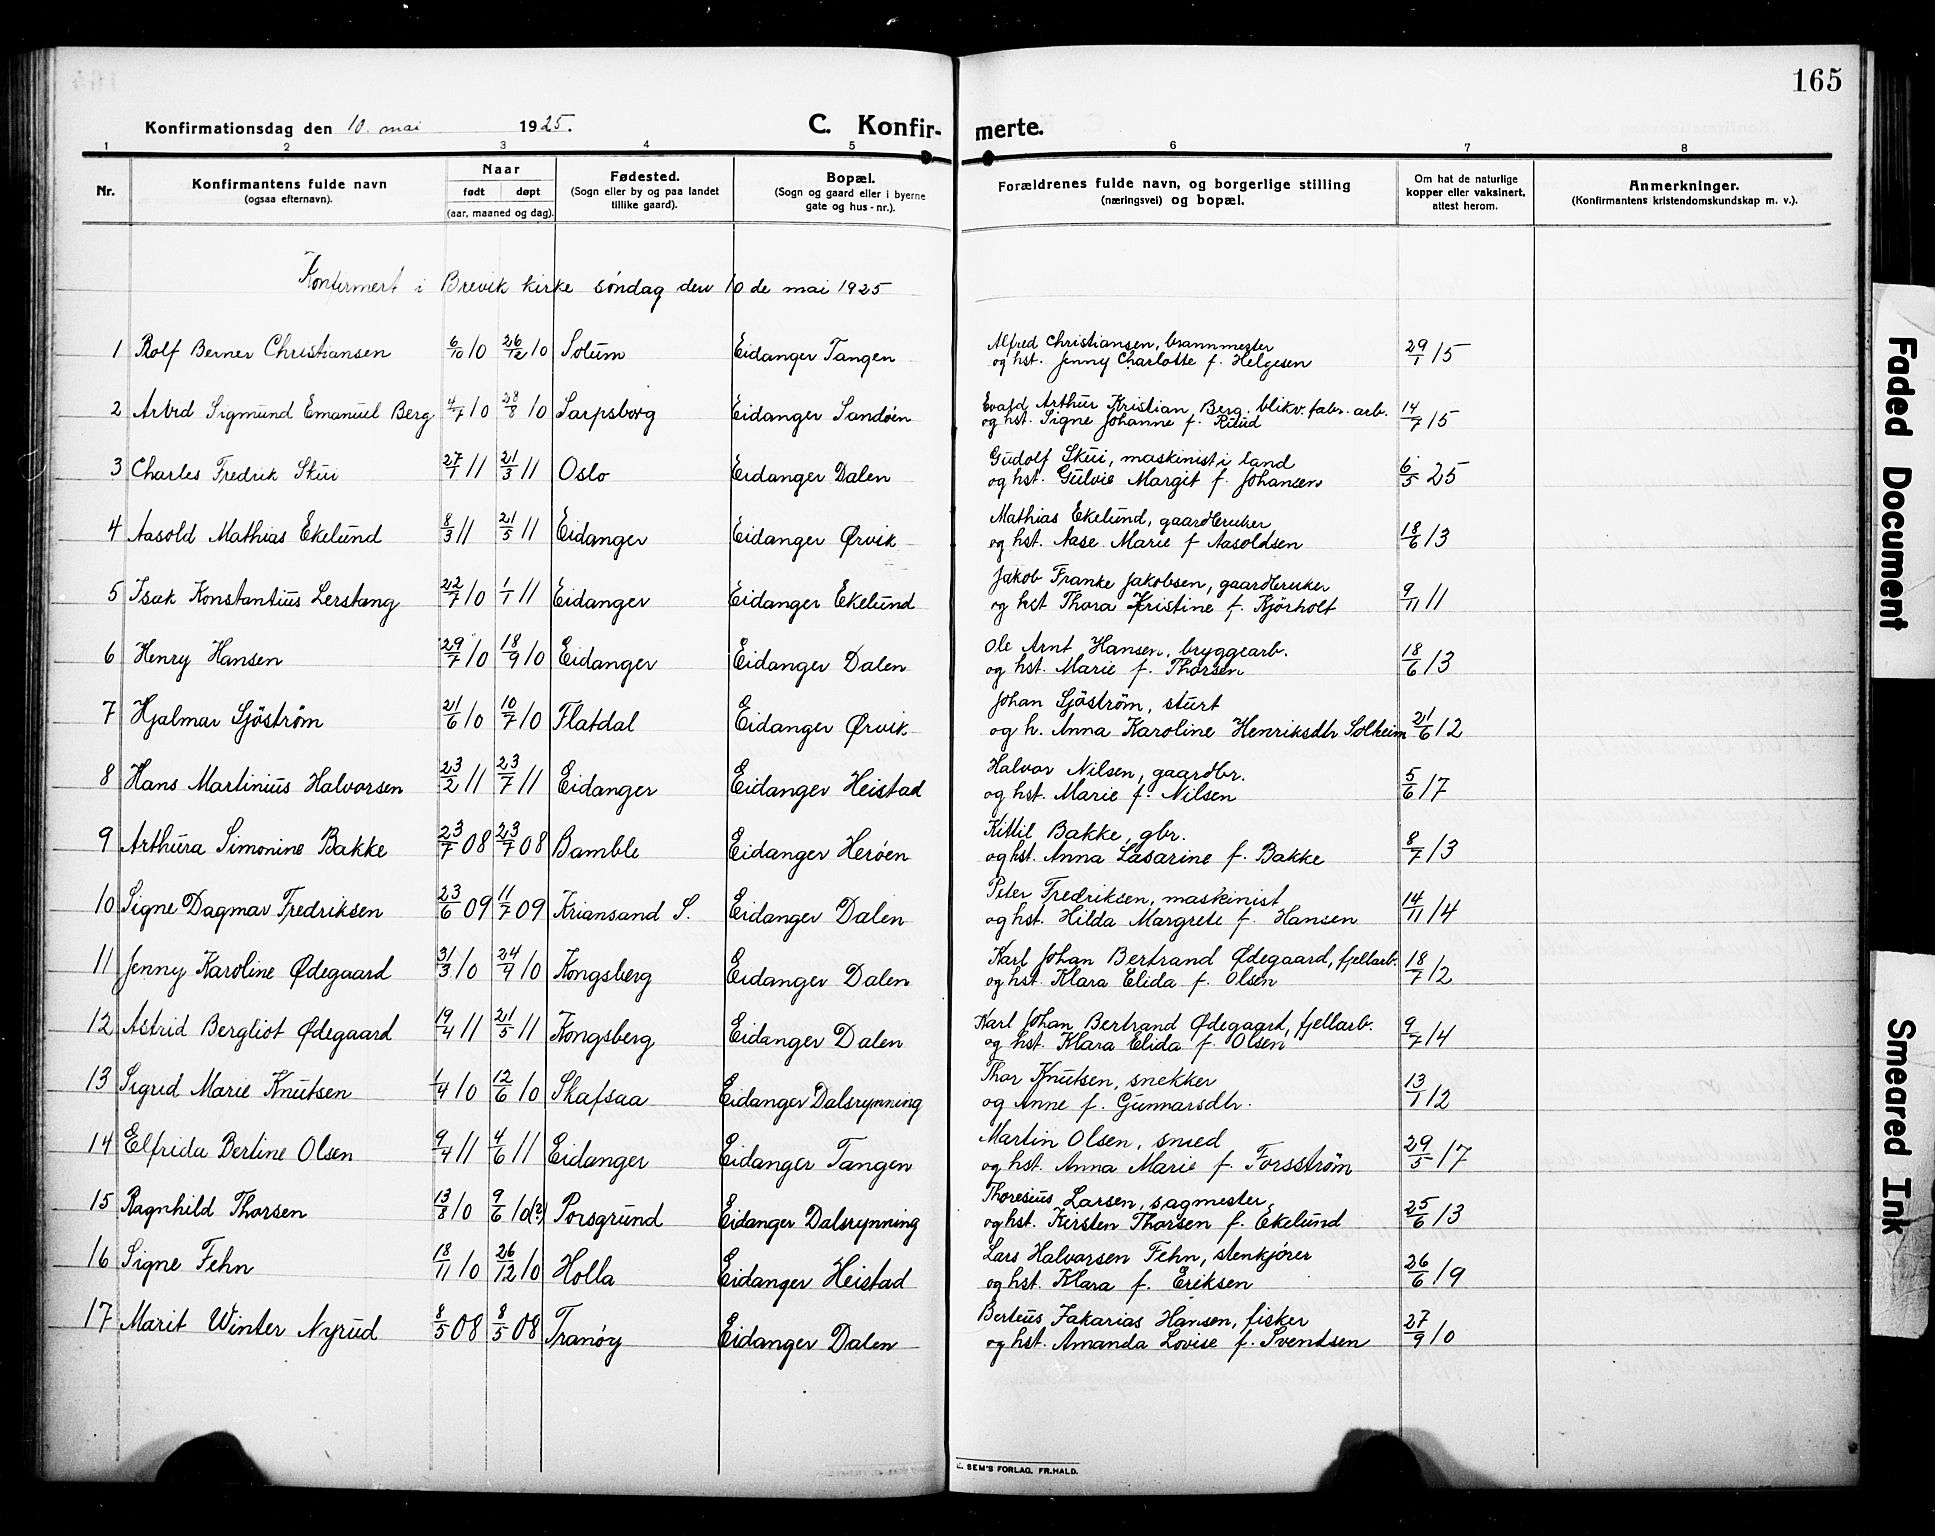 165
Konfirmationsdag den 10. mai 1925. C. Konfir- merte.
1 2 3 4 5 6 7 8
Nr. Konfirmantens fulde navn (ogsaa efternavn). Naar født døpt (aar, maaned og dag). Fødested. (Sogn eller by og paa landet tillike gaard). Bopæl. (Sogn og gaard eller i byerne gate og hus-nr.). Forældrenes fulde navn, og borgerlige stilling (næringsvei) og bopæl. Om hat de naturlige kopper eller vaksinert, attest herom. Anmerkninger. (Konfirmantens kristendomskundskap m. v.).
Konfirmert i Brevik kirke søndag den 10de mai 1925
1 Rolf Berner Christiansen 6/10 10 26/12 10 Solum Eidanger Tangen Alfred Christiansen, brannmester
og hst. Jenny Charlotte f. Helgesen 29/1 15
2 Arvid Sigmund Emanuel Berg 4/7 10 28/8 10 Sarpsborg Eidanger Sandöen Evald Arthur Kristian Berg. blikv. fabr. arb.
og hst. Signe Johanne f. 14/7 15
3 Charles Fredrik Skui 27/1 11 21/3 11 Oslo Eidanger Dalen Gudolf Skui, maskinist i land
og hst. Gulvie Margit f. Johansen 6/5 25
4 Aasold Mathias Ekelund 8/3 11 21/5 11 Eidanger Eidanger Ørvik Mathias Ekelund, gaardbruker
og hst. Aase Marie f Aasoldsen 18/6 13
5 Isak Konstantius Lerstang 22/7 10 1/1 11 Eidanger Eidanger Ekelund Jakob Franke Jakobsen, gaardbruker
og hst Thora Kristine f. Kjörholt 9/11 11
6 Henry Hansen 29/7 10 18/9 10 Eidanger Eidanger Dalen Ole Arnt Hansen, bryggearb.
og hst. Marie f. Thorsen 18/6 13
7 Hjalmar Sjöström 21/6 10 10/7 10 Flatdal Eidanger Ørvik Johan Sjöström, stuert
og h. Anna Karoline Henriksdtr Solheim 21/6 12
8 Hans Martinius Halvorsen 23/2 11 23/7 11 Eidanger Eidanger Heistad Halvor Nilsen, gaardbr.
og hst. Marie f. Nilsen 5/6 17
9 Arthura Simonine Bakke 23/7 08 23/7 08 Bamble Eidanger Heröen Kittil Bakke, gbr.
og hst. Anna Lasarine f. Bakke 8/7 13
10 Signe Dagmar Fredriksen 23/6 09 11/7 09 Kriansand S. Eidanger Dalen Peter Fredriksen, maskinist
og hst. Hilda Margrete f. Hansen 14/11 14
11 Jenny Karoline Ødegaard 31/3 10 24/9 10 Kongsberg Eidanger Dalen Karl Johan Bertrand Ødegaard, fjellarb.
og hst. Klara Elida f. Olsen 18/7 12
12 Astrid Bergliot Ødegaard 19/4 11 21/5 11 Kongsberg Eidanger Dalen Karl Johan Bertrand Ødegaard, fjellarb.
og hst. Klara Elida f. Olsen 9/7 14
13 Sigrid Marie Knutsen 1/4 10 12/6 10 Skafsaa Eidanger Dalsrynning Thor Knutsen, snekker
og Anne f. Gunnarsdtr. 13/1 12
14 Elfrida Bertine Olsen 9/4 11 4/6 11 Eidanger Eidanger Tangen Martin Olsen, smed
og hst. Anna Marie f. Forsström 29/5 17
15 Ragnhild Thorsen 13/8 10 9/6 10(?) Porsgrund Eidanger Dalsrynning Thoresius Larsen, sagmester,
og hst. Kirsten Thorsen f. Ekelund 25/6 13
16 Signe Fehn 18/11 10 26/12 10 Holla Eidanger Heistad Lars Halvorsen Fehn, stenkjører
og hst. Klara f. Eriksen 26/6 19
17 Marit Winter Nyrud 8/5 08 8/5 08 Tranöy Eidanger Dalen Berteus Zakarias Hansen, fisker
og hst. Amanda Lovise f. Svendsen 27/9 10
E. SEM'S FORLAG, FR.HALD.
Faded Document
Smeared Ink